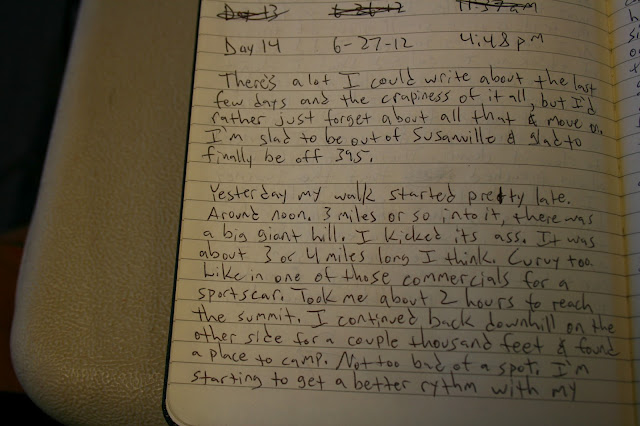 Day 13 6-26-12 11:37 am
Day 14 6-27-12 4:48 pm
There's a lot I could write about the last
few days and the crapiness of it all, but I'd
rather just forget about all that & move on.
I'm glad to be out of Susanville & glad to
finally be off 395.
Yesterday my walk started pretty late.
Around noon. 3 miles or so into it, there was
a big giant hill. I kicked its ass. It was
about 3 or 4 miles long I think. Curvy too.
Like in one of those commercials for a
sportscar. Took me about 2 hours to reach
the summit. I continued back downhill on the
other side for a couple thousand feet & found
a place to camp. Not too bad of a spot. I'm
starting to get a better rythm with my